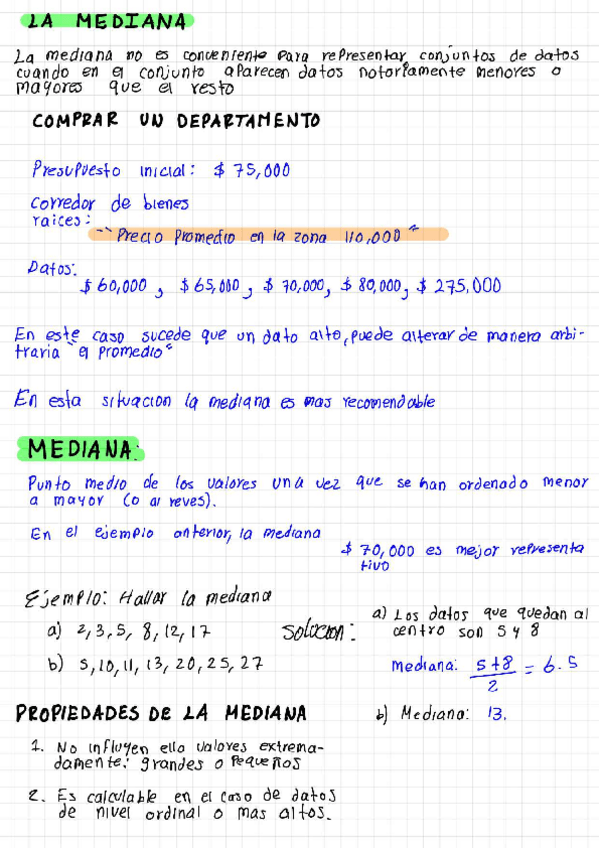 LA MEDIANA
La mediana no es conveniente para representar conjuntos de datos
cuando en el conjunto aparecen datos notoriamente menores o
mayores que el resto
COMPRAR UN DEPARTAMENTO
Presupuesto inicial: $ 75,000
Corredor de bienes
raices:
"Precio promedio en la zona 110,000"
Datos:
$ 60,000, $ 65,000, $ 70,000, $ 80,000, $ 275,000
En este caso sucede que un dato alto, puede alterar de manera arbi-
traria "el promedio"
En esta situacion la mediana es mas recomendable
MEDIANA:
Punto medio de los valores una vez que se han ordenado menor
a mayor (o al reves).
En el ejemplo anterior, la mediana
$ 70,000 es mejor representa
tivo
Ejemplo: Hallar la mediana
a) 2,3,5, 8,12,17
b) 5,10,11, 13, 20, 25, 27
Solucion:
a) Los datos que quedan al
centro son 5 y 8
mediana: 5+8/2 = 6.5
b) Mediana: 13.
PROPIEDADES DE LA MEDIANA
1. No influyen ello valores extrema-
damente: grandes o pequeños
2. Es calculable en el caso de datos
de nivel ordinal o mas altos.